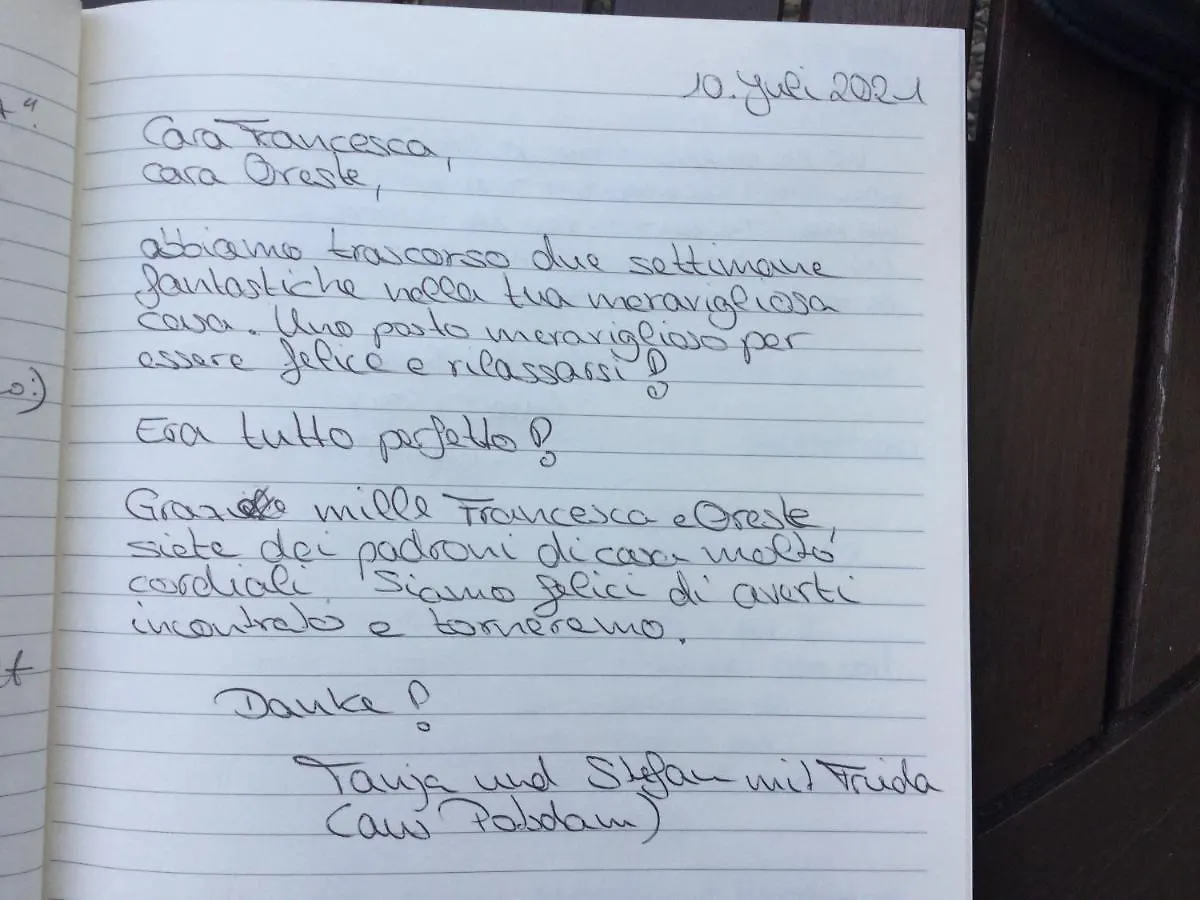 10. Juli 2021
Cara Francesca,
cara Oreste,
abbiamo trascorso due settimane
fantastiche nella tua meravigliosa
casa. Uno posto meraviglioso per
essere felice e rilassarsi!
Era tutto perfetto!
Grazie mille Francesca e Oreste,
siete dei padroni di casa molto
cordiali. Siamo felici di averti
incontrato e torneremo.
Danke!
Tanja und Stefan mit Frida
(aus Potsdam)